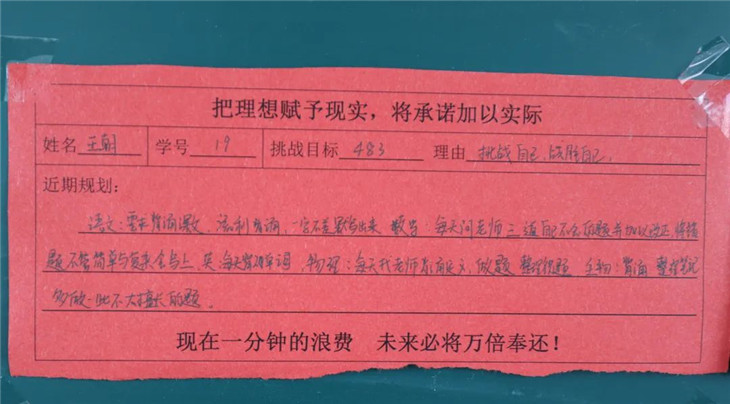 把理想赋予现实，将承诺加以实际
姓名 王朝 学号 19 挑战目标 483 理由 挑战自己，战胜自己。
近期规划：
语文：需求背诵课文，一字不差默写出来，数学：每天问老师三道自己不会的题并加以改正 将错
题不管简单与复杂全写上，英：每天背单词，物理：每天找老师 做题 整理错题 生物：背诵 整理笔记
多做一些不太擅长的题。
现在一分钟的浪费 未来必将万倍奉还！